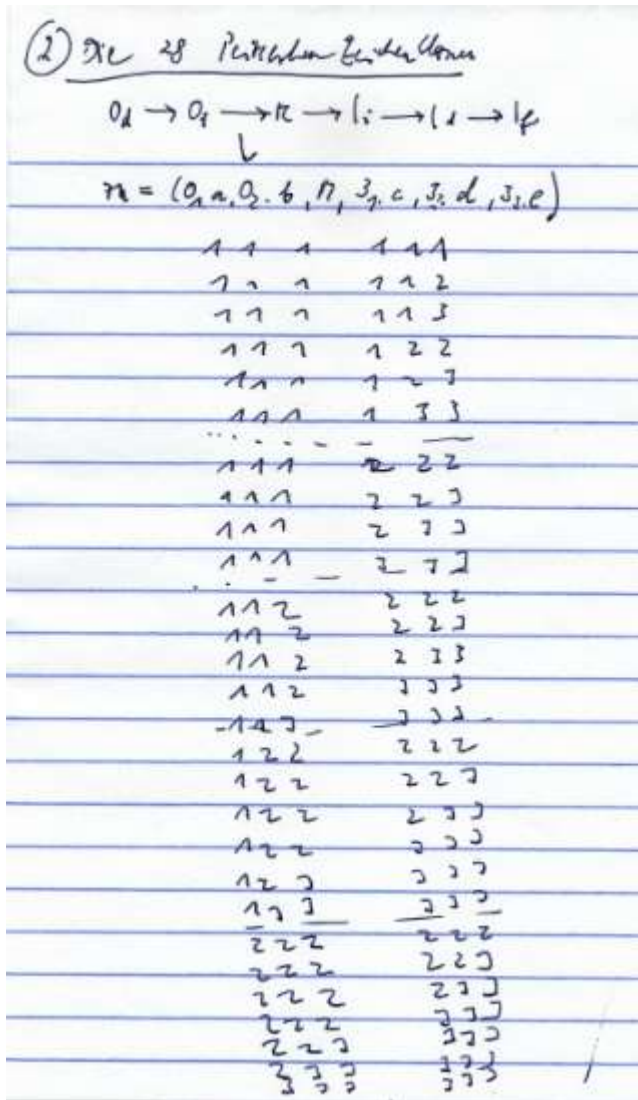 ② Die 28 Peirceschen Zeichenklassen
O → O → R → I → I → I
= (O a, O b, R, 3 c, 3 d, 3 e)
1 1 1 1 1 1
1 1 1 1 1 2
1 1 1 1 1 3
1 1 1 1 2 2
1 1 1 1 2 3
1 1 1 1 3 3
1 1 1 2 2 2
1 1 1 2 2 3
1 1 1 2 3 3
1 1 1 3 3 3
1 1 2 2 2 2
1 1 2 2 2 3
1 1 2 2 3 3
1 1 2 3 3 3
1 1 3 3 3 3
1 2 2 2 2 2
1 2 2 2 2 3
1 2 2 2 3 3
1 2 2 3 3 3
1 2 3 3 3 3
1 3 3 3 3 3
2 2 2 2 2 2
2 2 2 2 2 3
2 2 2 2 3 3
2 2 2 3 3 3
2 2 3 3 3 3
3 3 3 3 3 3